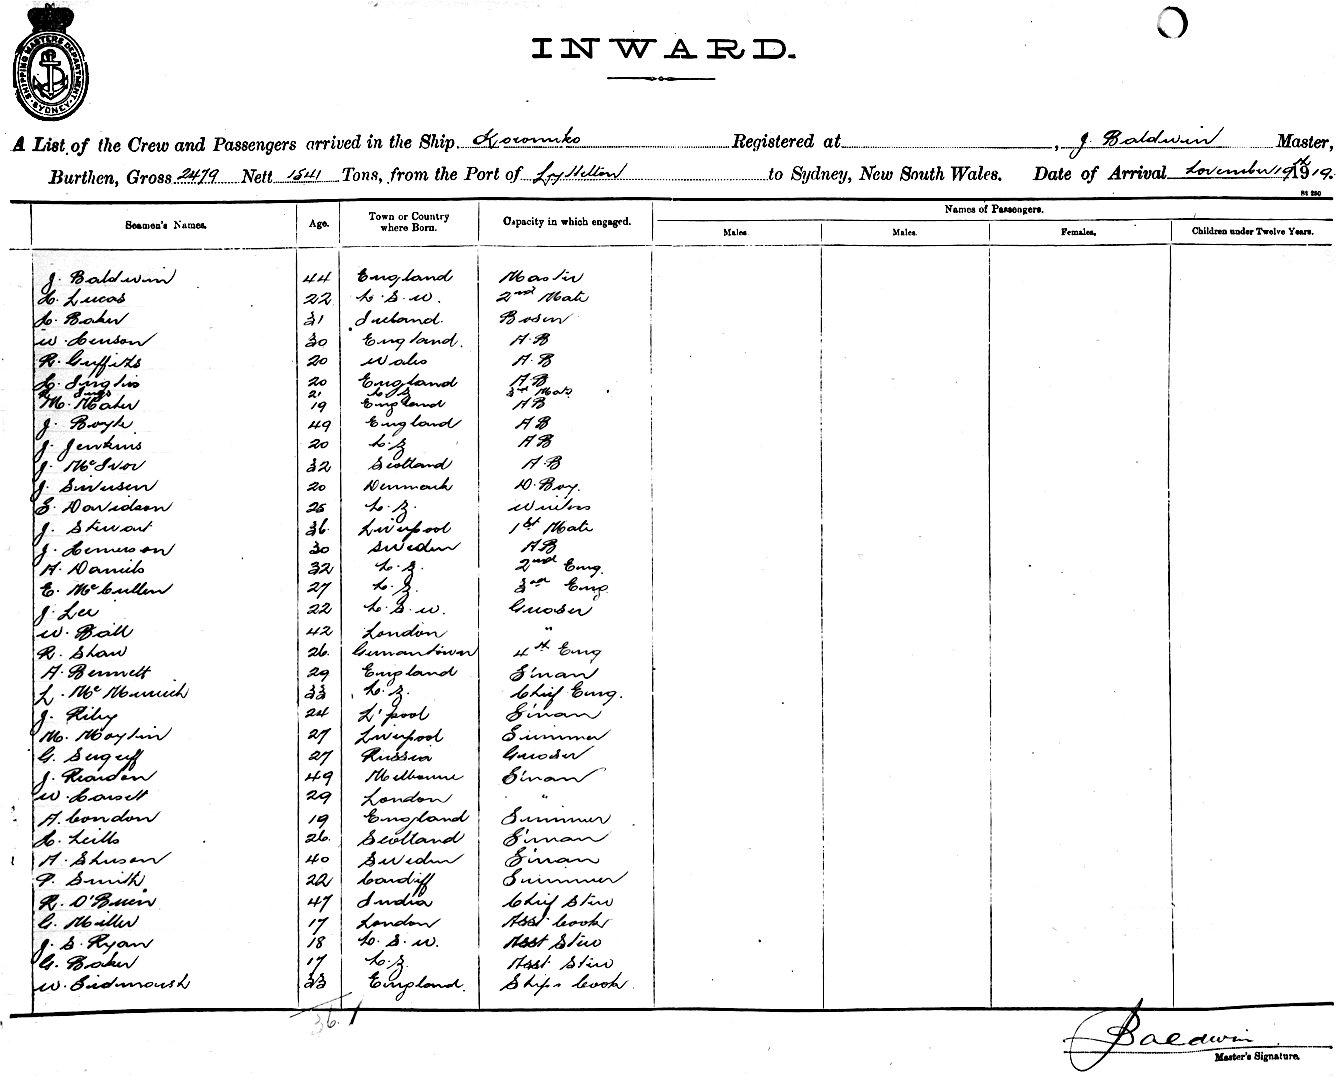 SHIPPING MASTERS DEPARTMENT
SYDNEY
INWARD.
A List of the Crew and Passengers arrived in the Ship Koromiko Registered at , J Baldwin Master,
Burthen, Gross 2479 Nett 1541 Tons, from the Port of Lyttelton to Sydney, New South Wales. Date of Arrival November 19th 1919.
Seamen's Names. Age. Town or Country where Born. Capacity in which engaged. Names of Passengers.
Males. Males. Females. Children under Twelve Years.
J. Baldwin 44 England Master
Lucas 22 N.S.W. 2nd Mate
Baker 31 Ireland. Bosun
W. Henson 30 England. A.B
R. Griffiths 20 Wales A.B
Inglis 20 England A.B
21 N Z 3rd Mate
M. Maher 19 England AB
J. Boyle 49 England AB
J. Jenkins 20 N.Z AB
J. McIvor 32 Scotland A.B
J. Siversen 20 Denmark D. Boy.
Davidson 25 N.Z.
J. Stewart 36 Liverpool 1st Mate
J. 30 Sweden AB
A. Daniels 32 N.Z. 2nd Eng.
E. McCullen 27 N.Z. 3rd Eng
J. Lee 22 N.S.W. Greaser
W. Ball 42 London "
R. Shaw 26 Germantown 4th Eng
A. Bennett 29 England F'man
L. 33 N.Z. Chief Eng.
J. Riley 24 L'pool F'man
M. 27 Liverpool Trimmer
G. 27 Russia Greaser
J. Reardon 49 Melbourne F'man
W. 29 London "
A. Condon 19 England Trimmer
26 Scotland F'man
A. 40 Sweden F'man
P. Smith 22 Cardiff Trimmer
R. O'Brien 47 India Chief Stew
G. Miller 17 London Asst Cook
J. S. Ryan 18 N.S.W. Asst Stew
G. Baker 17 N.Z. Asst Stew
W. Sidmouth 33 England. Ships Cook.
36.
J Baldwin
Master's Signature.